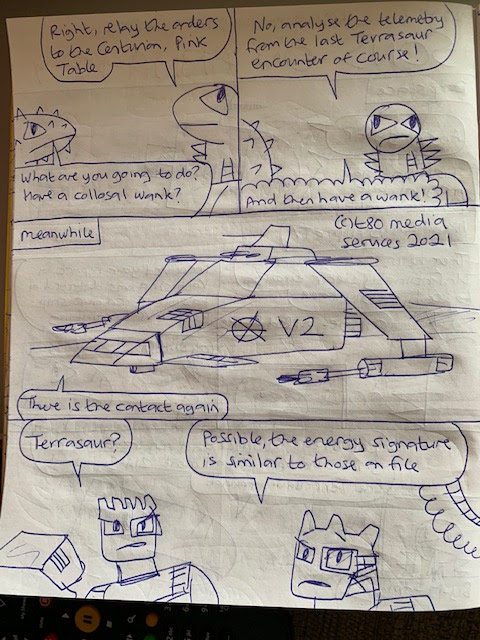 Right, relay the orders
to the Centurion, Pink
Table
What are you going to do?
Have a collosal wank?
No, analyse the telemetry
from the last Terrasaur
encounter of course!
And then have a wank!
meanwhile
(c)t80 media
services 2021
V2
There is the contact again
Terrasaur?
Possible, the energy signature
is similar to those on file